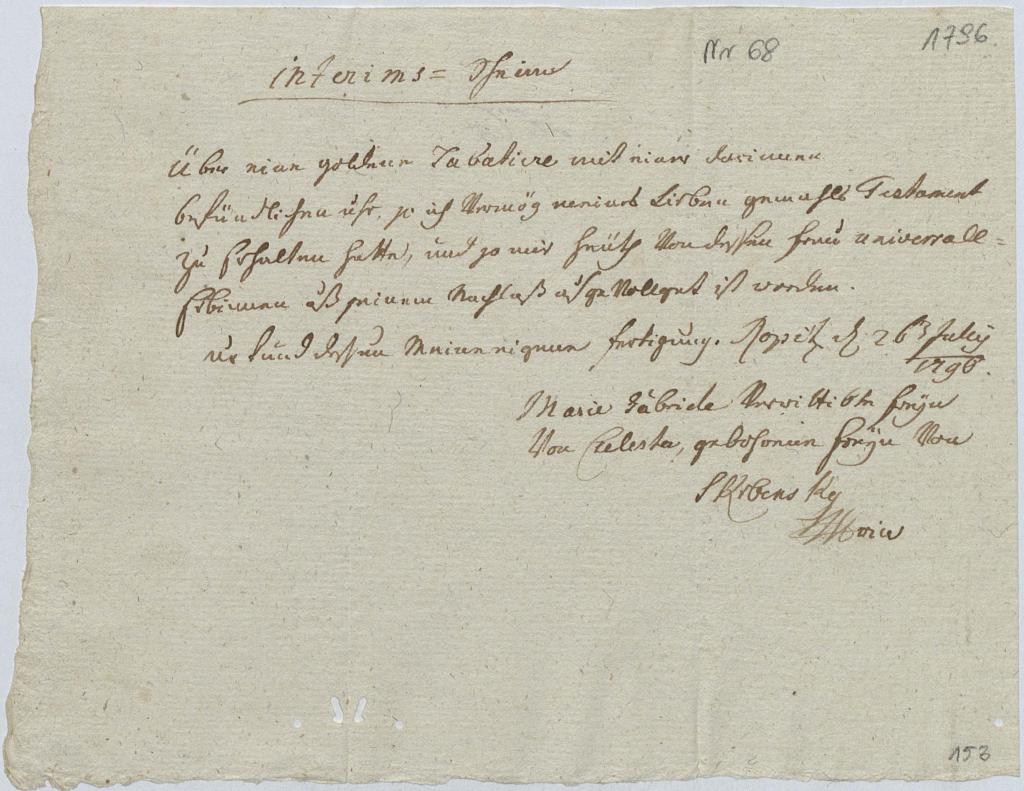 Nr 68
1796.
interims= Schein
Über eine goldene Tabatiere mit einer darinnen
befündlichen uhr, so ich Vermög meines Lieben gemahls Testament
zu Erhalten hatte, und so mir heüth Von dessen frau universall=
Erbinnen auß seinem Nachlaß ausgevollget ist worden.
urkund dessen Meine eigene fertigung. Ropitz d. 26t July
1796.
Marie Gabriele Verwittibte freyin
Von Celesta, gebohrenne freyin Von
Skrbensky
153